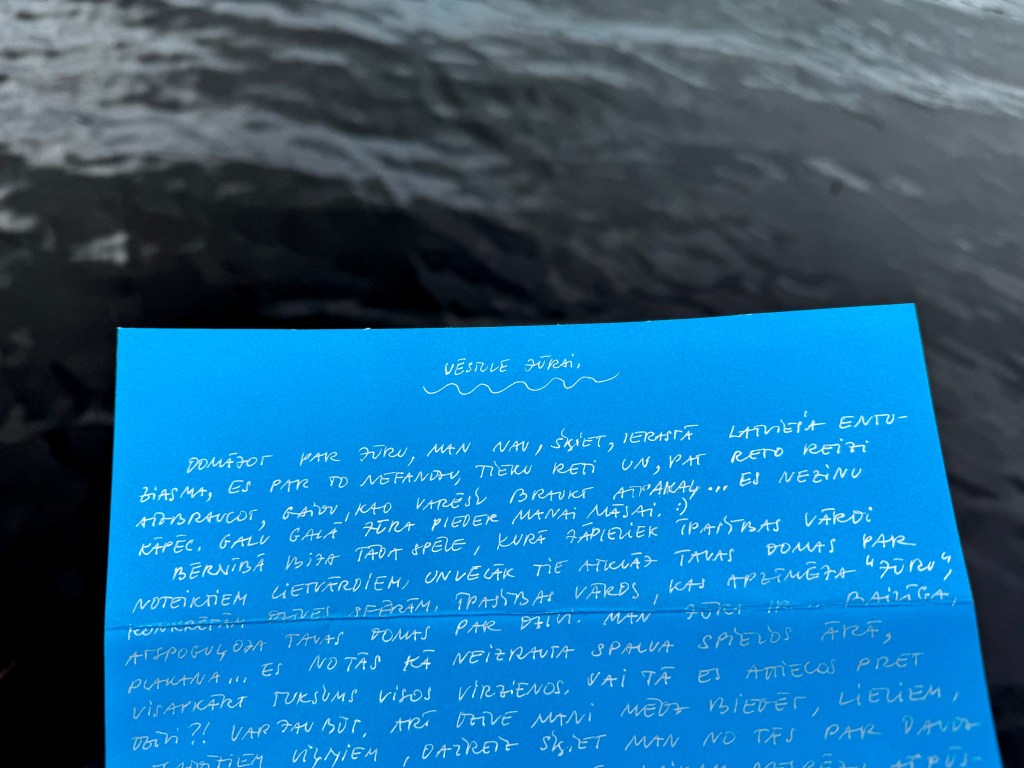 VĒSTULE JŪRAI.
DOMĀJOT PAR JŪRU, MAN NAV, ŠĶIET, IERASTĀ LATVIEŠA ENTU-
ZIASMA, ES PAR TO NEFANOJU, TIEKU RETI UN, PAT RETO REIZI
ATBRAUCOT, GAIDU, KAD VARĒŠU BRAUKT ATPAKAĻ... ES NEZINU
KĀPĒC. GALU GALĀ JŪRA PIEDER MANAI MĀSAI. :)
BĒRNĪBĀ BIJA TĀDA SPĒLE, KURĀ JĀPIELIEK ĪPAŠĪBAS VĀRDI
NOTEIKTIEM LIETVĀRDIEM, UN VĒLĀK TIE ATKLĀJ TAVAS DOMAS PAR
KONKRĒTĀM DZĪVES SFĒRĀM. ĪPAŠĪBAS VĀRDS, KAS APZĪMĒJA "JŪRU",
ATSPOGUĻOJA TAVAS DOMAS PAR DZĪVI. MAN JŪRA IR... BAILĪGA,
PLAKANA... ES NO TĀS KĀ NEIZRAUTA SPALVA SPIEDOS ĀRĀ,
VISAPKĀRT TUKŠUMS VISOS VIRZIENOS. VAI TĀ ES ATTIECOS PRET
DZĪVI?! VAR JAU BŪT, ARĪ DZĪVE MANI MĒDZ BIEDĒT, LIELIEM,
VIĻŅIEM, DAŽREIZ ŠĶIET MAN NO TĀS PAR DAUDZ
ATPŪS-